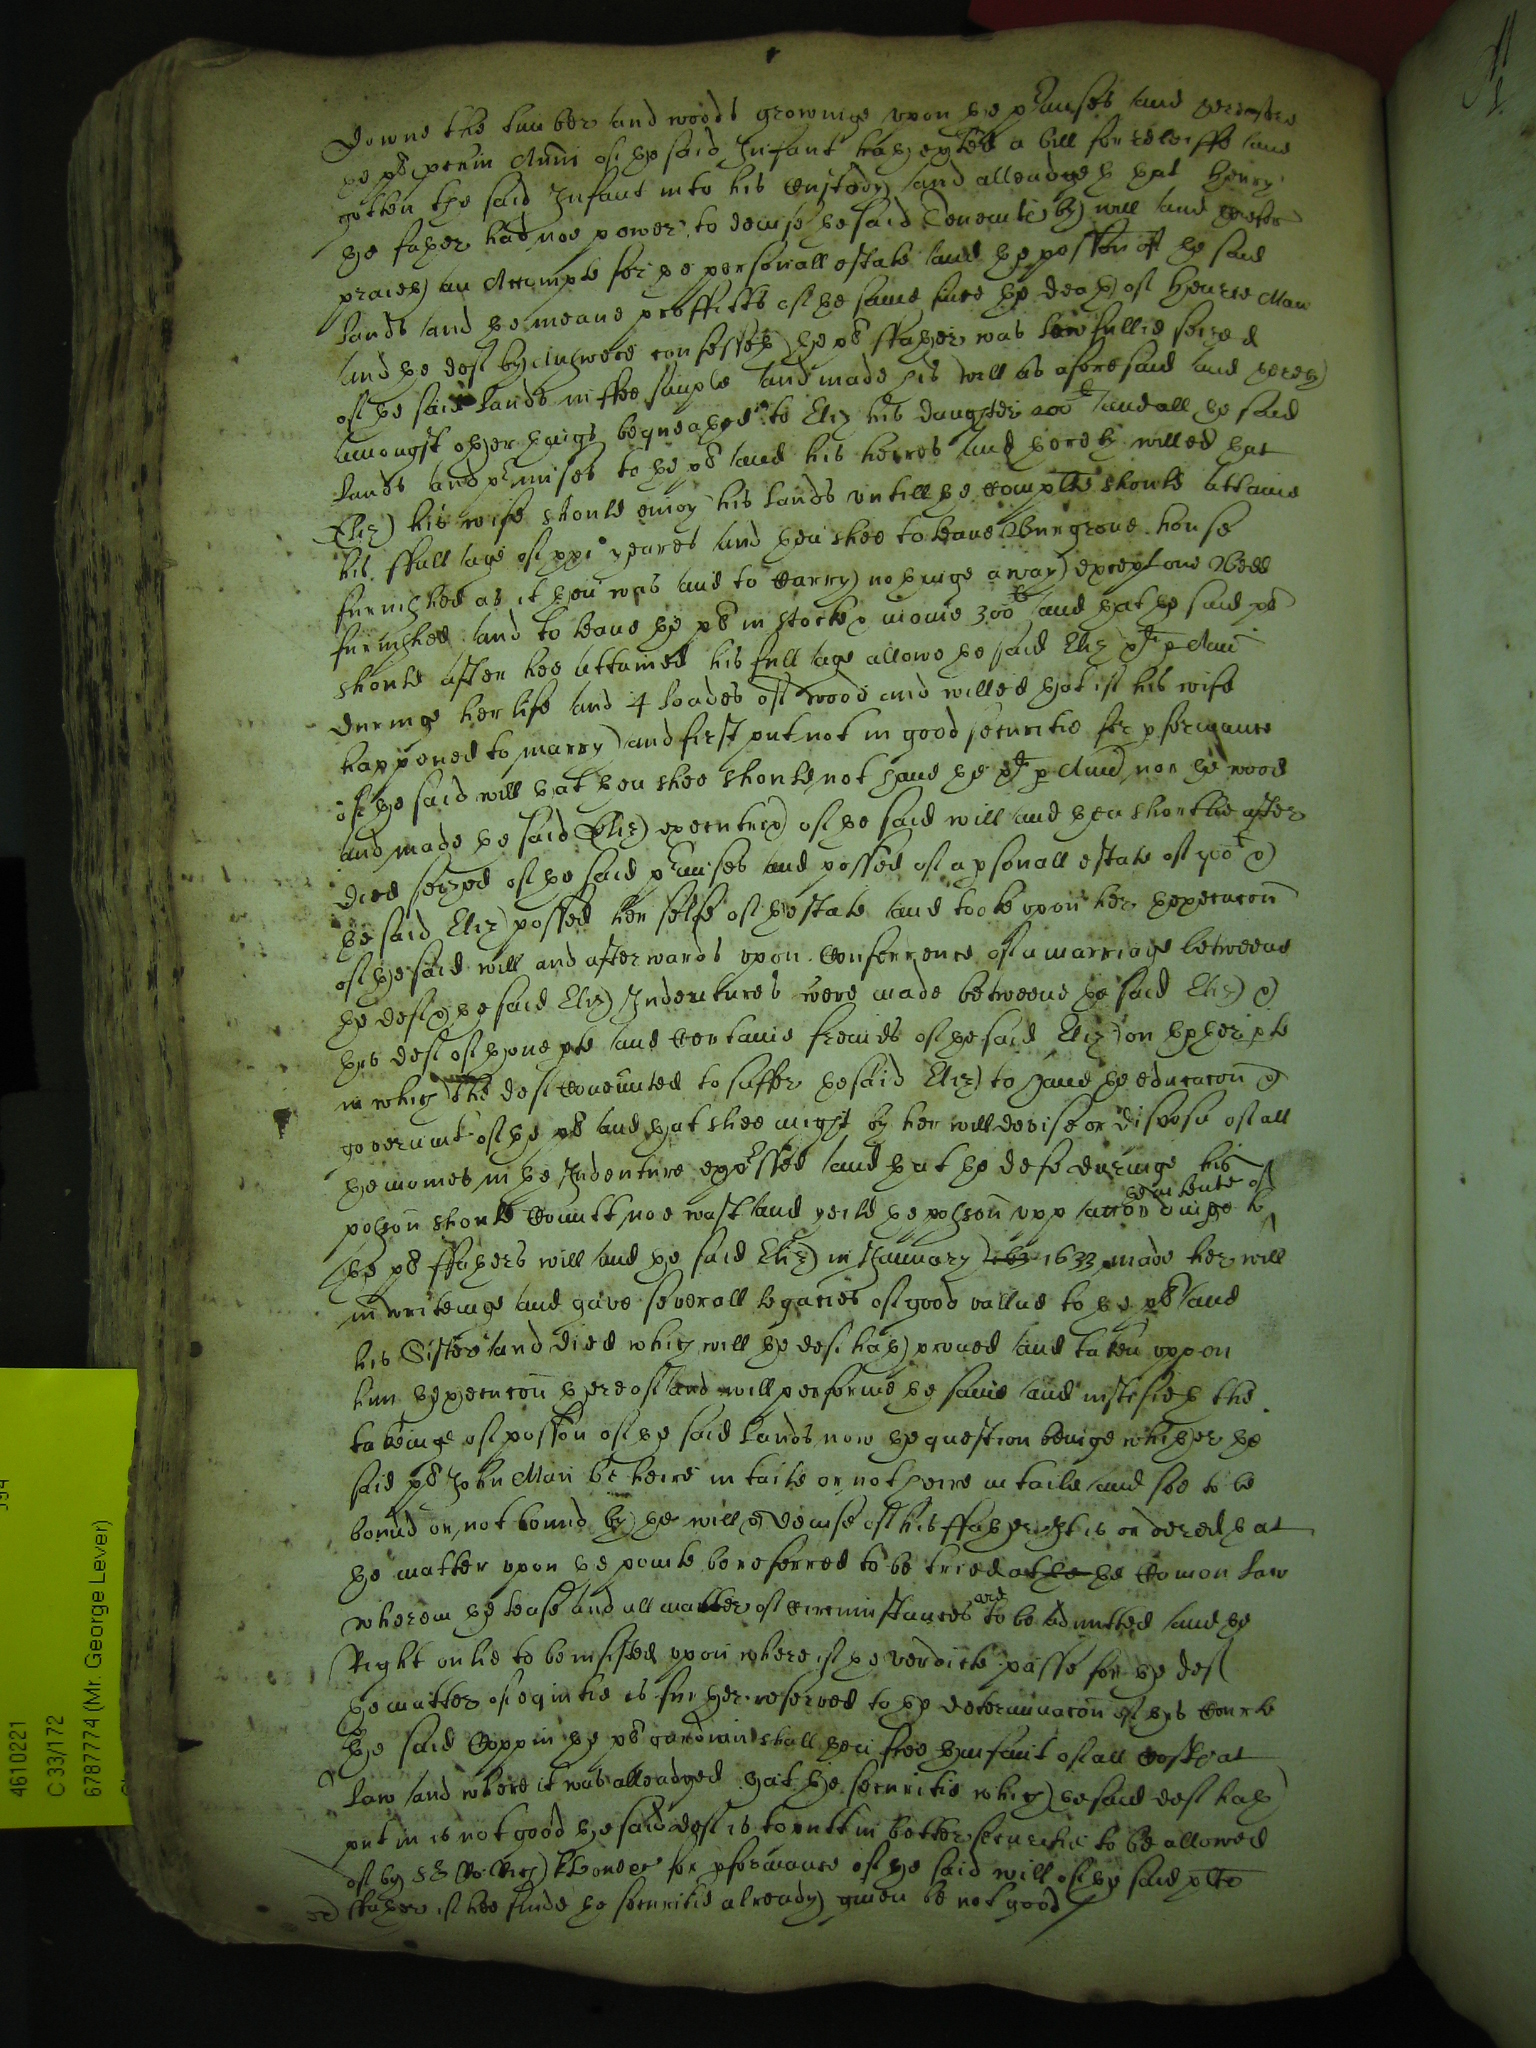 Downe the timber and woods growinge upon ye p'mises and therefore
ye pl' proxin Amic of ye said Infant hath exhited a bill for releiffe and
gotten the said Infant into his Custody and alleadgeth that Henry
ye father had noe power to devise ye said Tenemts by will and therefore
praieth an Accompte for ye personall estate and ye possion of ye said
lands and ye meane proffitts of ye same since ye death of Henrie Man
and ye deft by Answere confesseth ye pl' ffather was lawfullie seized
of ye said lands in ffee simple and made his will as aforesaid and thereby
amongst other things bequeathed to Eliz his daughter 200l and all ye said
lands and p'mises to ye pl' and his heires and thereby willed that
Eliz his wife should enioy his lands untill ye Complte should attaine
his ffull age of xxi yeares and then shee to leave house
furnished as it then was and to Carry nothinge away except one Bedd
furnished and to leave ye pl' in stocke & monie 300l and that ye said pl'
should after hee attained his full age allowe ye said Eliz p Ann
duringe her life and 4 loades of wood and willed that if his wife
happened to marry and first put not in good securitie for pformance
of ye said will that then shee should not have ye p Ann nor ye wood
and made ye said Eliz executrix of ye said will and then shortlie after
died seized of ye said p'mises and possed of a psonall estate of 700l &
ye said Eliz possed her selfe of thestate and tooke upon her thexecucon
of ye said will and afterwards upon Conferrence of a marriage betweene
ye deft & ye said Eliz Indentures were made betweene ye said Eliz &
this deft of thone pte and Certaine freinds of ye said Eliz on thother pte
in which the deft Covennted to suffer ye said Eliz to have ye educacon &
governmt of ye pl' and that shee might by her will devise or dispose of all
ye monies in ye Indenture exp'ssed and that ye deft duringe his
possion should Comitt noe wast and yeild ye possion upp accordinge to
thentente of
ye pl' ffathers will and ye said Eliz in January 1633 made her will
in writeinge and gave severall legacies of good vallue to ye pl' and
his Sister and died which will ye deft hath proved and taken uppon
him thexecucon thereof and will performe ye same and iustifieth the
takeinge of possion of ye said lands now ye question beinge whether ye
said pl' John Man be heire in taile or not heire in taile and soe to be
bound or not bound by ye will & devise of his ffather It is ordered that
ye matter upon ye pointe be referred to be tried at ye Comon law
wherein ye lease and all matter of Circumstances are to be admitted and ye
Right onlie to be insisted upon where if ye verdicte passe for ye deft
ye matter of equitie is further reserved to ye determinacon of this Courte
ye said Coppin ye pl' gardian shall then free thinfant of all Costs at
law and where it was alleadged that ye securitie which ye said deft hath
put in is not good ye said deft is to putt in better securitie to be allowed
of by Sr for pformance of ye said will of ye said plts
ffather if hee finde ye securitie already given be not good
4610221
C 33/172
6787774 (Mr. George Lever)